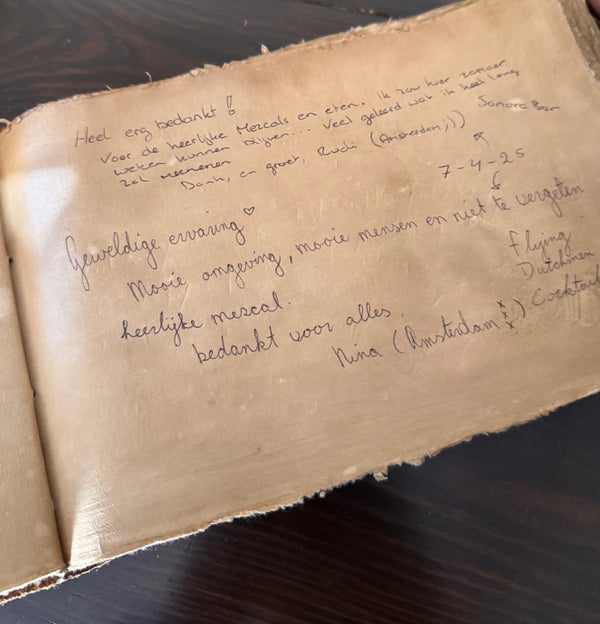 Heel erg bedankt!
Voor de heerlijke Mezcals en eten. Ik zou hier zomaar
weken kunnen blijven... Veel geleerd wat ik heel lang
zal meenemen
Dank, en groet, Rudi (Amsterdam;))
Sonora
7-4-25
Geweldige ervaring ♡
Mooie omgeving, mooie mensen en niet te vergeten
heerlijke mezcal.
bedankt voor alles.
Nina (Amsterdam xxx)
Flying
Dutchmen
Cocktail